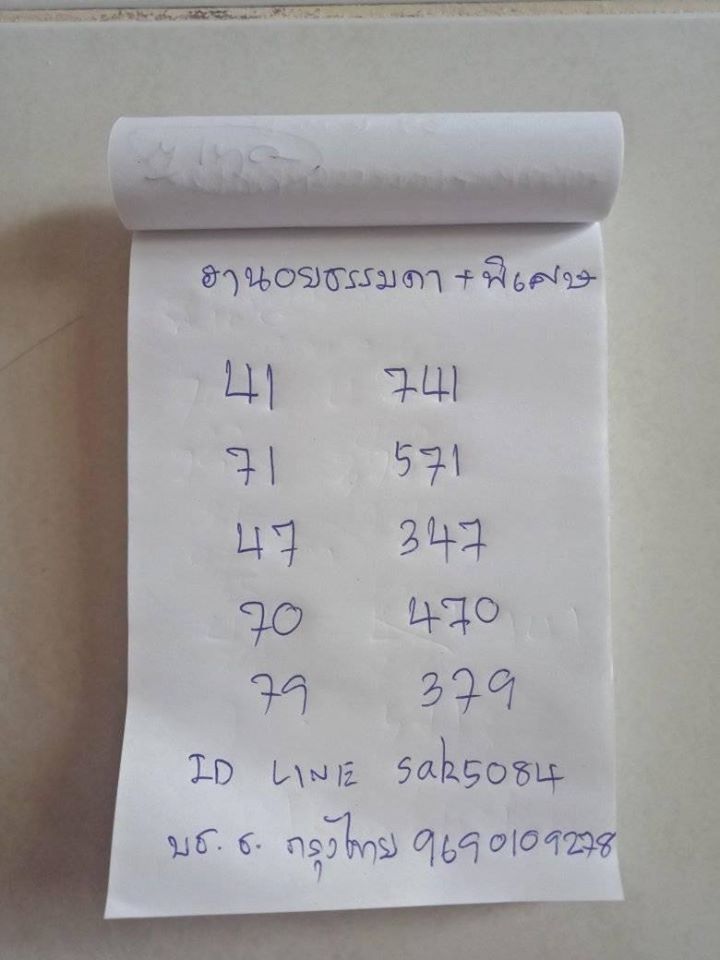 ฮานอยธรรมดา + พิเศษ
41 741
71 571
47 347
70 470
79 379
ID LINE sak5084
บช. ธ. กรุงไทย 9690109278